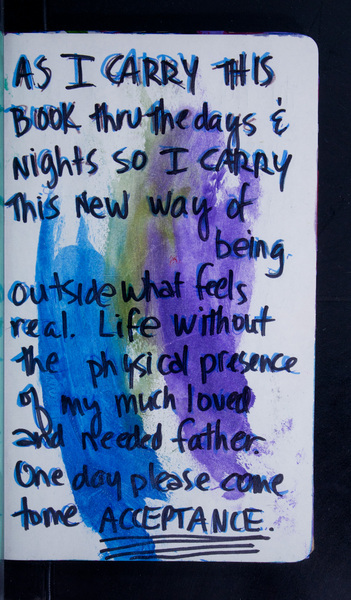 AS I CARRY THIS
BOOK thru the days &
nights SO I CARRY
This New way of
being
outside what feels
real. Life without
the physical presence
of my much loved
and needed father.
One day please come
to me ACCEPTANCE.